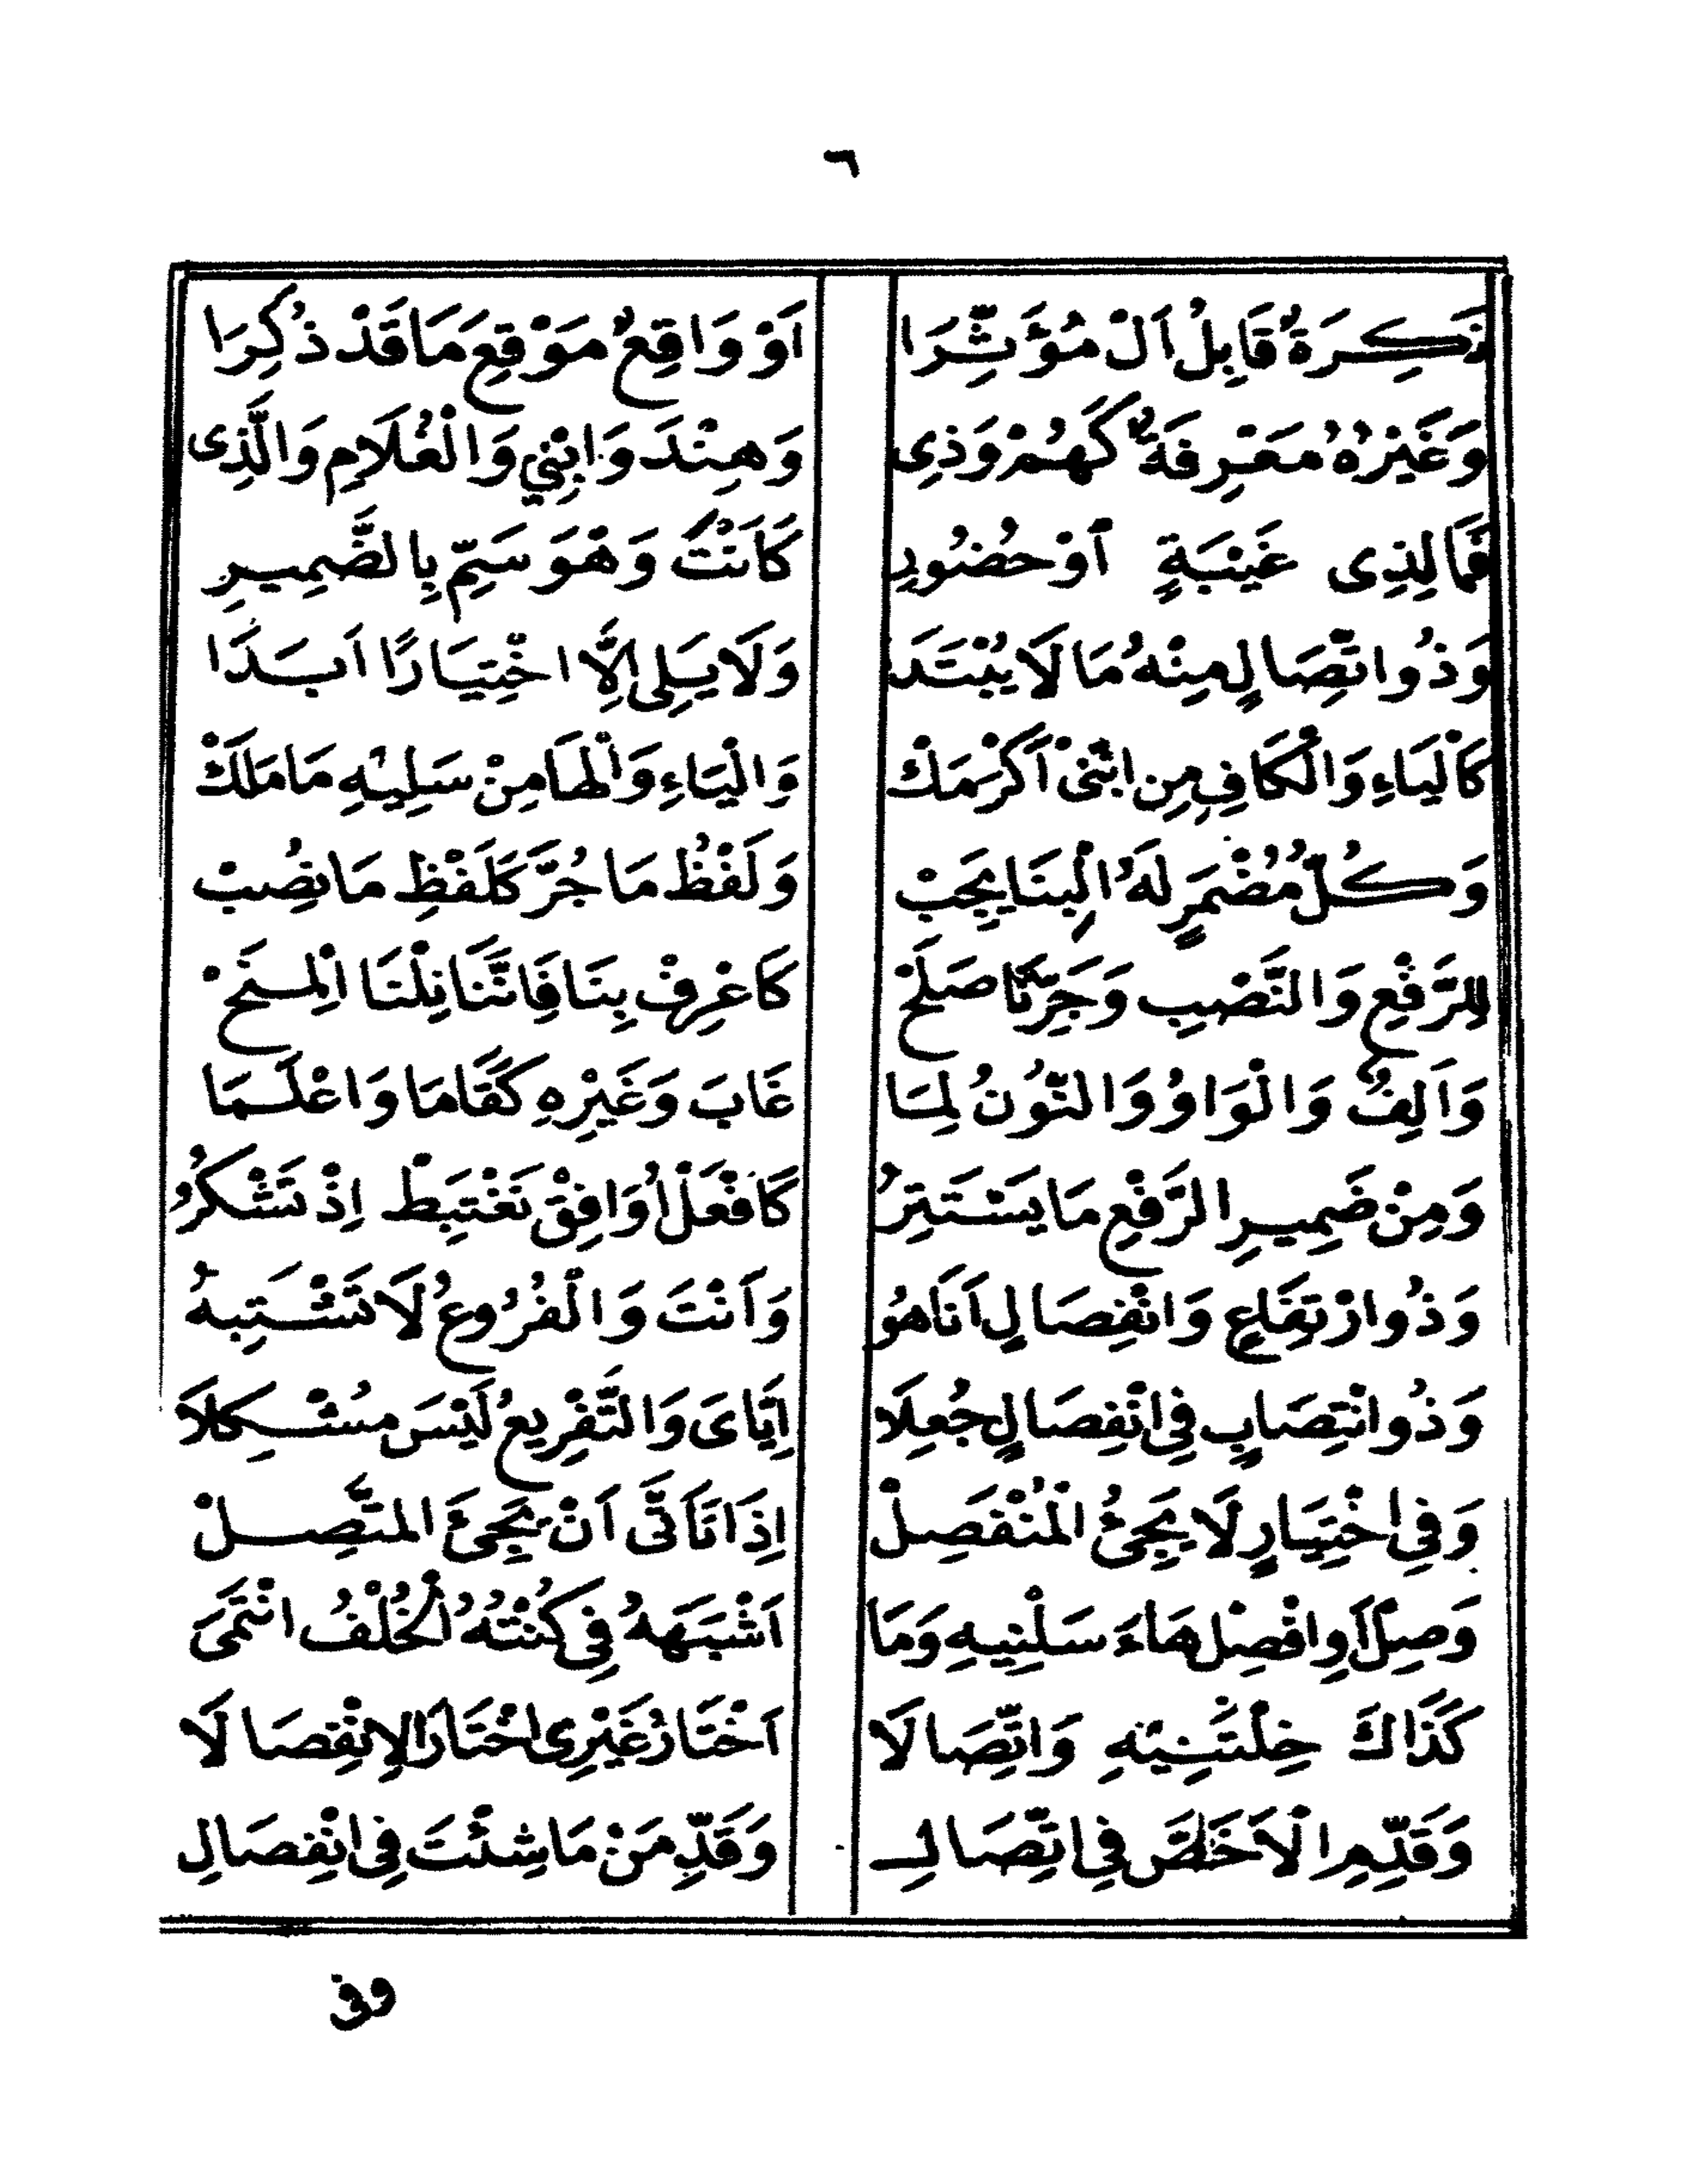 ٦
نَكِرَةٌ قَابِلُ اَلْ مُؤَثِّرَا اَوْ وَاقِعٌ مَوْقِعِ مَا قَدْ ذُكِرَا
وَغَيْرُهُ مَعْرِفَةٌ كَهُمْ وَذِى وَهِنْدَ وَابْنِي وَالْغُلَامِ وَالَّذِى
فَمَا لِذِى غَيْبَةٍ اَوْ حُضُورِ كَاَنْتَ وَهْوَ سَمِّ بِالضَّمِيرِ
وَذُو اتِّصَالٍ مِنْهُ مَا لَا يُبْتَدَا وَلَا يَلِى اِلَّا اخْتِيَارًا اَبَدَا
كَالْيَاءِ وَالْكَافِ مِنِ ابْنِى اَكْرَمَكْ وَالْيَاءِ وَالْهَا مِنْ سَلِيْهِ مَا مَلَكْ
وَكُلُّ مُضْمَرٍ لَهُ الْبِنَا يَجِبْ وَلَفْظُ مَا جُرَّ كَلَفْظِ مَا نُصِبْ
لِلرَّفْعِ وَالنَّصْبِ وَجَرِّنَا صَلَحْ كَاعْرِفْ بِنَا فَاِنَّنَا نِلْنَا الْمِنَحْ
وَاَلِفٌ وَالْوَاوُ وَالنُّونُ لِمَا غَابَ وَغَيْرِهِ كَقَامَا وَاعْلَمَا
وَمِنْ ضَمِيرِ الرَّفْعِ مَا يَسْتَتِرُ كَافْعَلْ اُوَافِقْ نَغْتَبِطْ اِذْ تَشْكُرُ
وَذُو ارْتِفَاعٍ وَانْفِصَالٍ اَنَا هُو وَاَنْتَ وَالْفُرُوعُ لَا تَشْتَبِهُ
وَذُو انْتِصَابٍ فِى انْفِصَالٍ جُعِلَا اِيَّاىَ وَالتَّفْرِيعُ لَيْسَ مُشْكِلَا
وَفِى اخْتِيَارٍ لَا يَجِئُ الْمُنْفَصِلْ اِذَا تَاَتَّى اَنْ يَجِئَ الْمُتَّصِلْ
وَصِلْ اَوِ افْصِلْ هَاءَ سَلْنِيهِ وَمَا اَشْبَهَهُ فِى كُنْتُهُ الْخُلْفُ انْتَمَى
كَذَاكَ خِلْتَنِيْهِ وَاتِّصَالَا اَخْتَارُ غَيْرِى اخْتَارَ الِانْفِصَالَا
وَقَدِّمِ الْاَخَصَّ فِى اتِّصَالِ وَقَدِّمَنْ مَا شِئْتَ فِى انْفِصَالِ
وفى